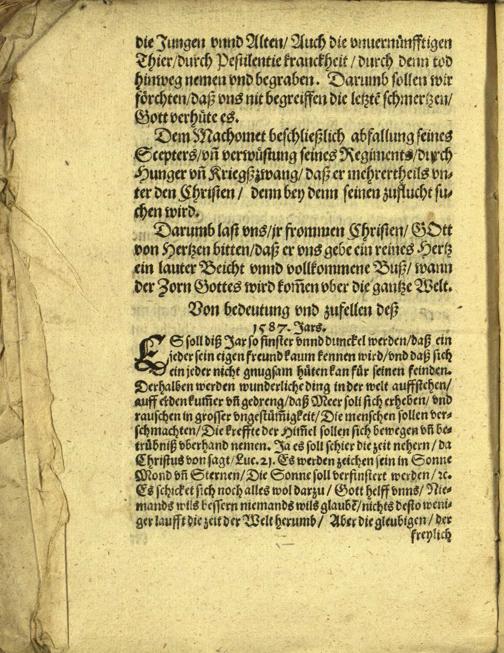 die Jungen vnnd Alten/ Auch die vnuernünfftigen
Thier/durch Pestilentie kranckheit / durch denn tod
hinweg nemen vnd begraben. Darumb sollen wir
förchten/daß vns nit begreiffen die letztē schmertzen/
Gott verhüte es.
Dem Machomet beschließlich abfallung seines
Scepters/vñ verwüstung seines Regiments/durch
Hunger vñ Kriegßzwang/ daß er mehrertheils vn-
ter den Christen / denn bey denn seinen zuflucht su-
chen wird.
Darumb last vns/jr frommen Christen/ GOtt
von Hertzen bitten/daß er vns gebe ein reines Hertz
ein lauter Beicht vnnd vollkommene Buß/ wann
der Zorn Gottes wird kom̃en vber die gantze Welt.
Von bedeutung vnd zufellen deß
1587. Jars.
ES soll diß Jar so finster vnnd dunckel werden/daß ein
jeder sein eigen freund kaum kennen wird/vnd daß sich
ein jeder nicht gnugsam hüten kan für seinen feinden.
Derhalben werden wunderliche ding in der welt auffstehen/
auff erden kum̃er vñ gedreng/daß Meer soll sich erheben/ vnd
rauschen in grosser vngestümigkeit/ Die menschen sollen ver-
schmachten/ Die kreffte der Him̃el sollen sich bewegen vñ be-
trübniß vberhand nemen. Ja es soll schier die zeit nehern / da
Christus von sagt/ Luc. 21. Es werden zeichen sein in Sonne
Mond vñ Sternen/ Die Sonne soll verfinstert werden / ꝛc.
Es schicket sich noch alles wol darzu / Gott helff vnns/ Nie-
mands wils bessern niemands wils glaubē/nichts desto weni-
ger laufft die zeit der Welt herumb / Aber die gleubigen / der
freylich